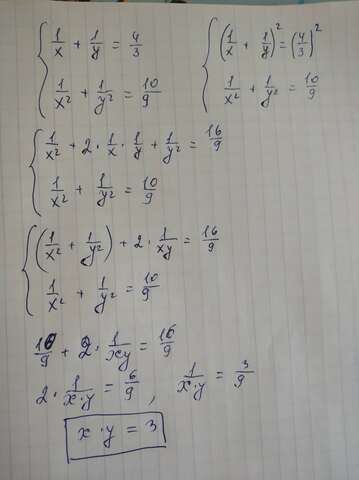 { 1/x + 1/y = 4/3
1/x² + 1/y² = 10/9
{ (1/x + 1/y)² = (4/3)²
1/x² + 1/y² = 10/9
{ 1/x² + 2 · 1/x · 1/y + 1/y² = 16/9
1/x² + 1/y² = 10/9
{ (1/x² + 1/y²) + 2 · 1/xy = 16/9
1/x² + 1/y² = 10/9
10/9 + 2 · 1/xy = 16/9
2 · 1/x·y = 6/9 , 1/x·y = 3/9
x · y = 3